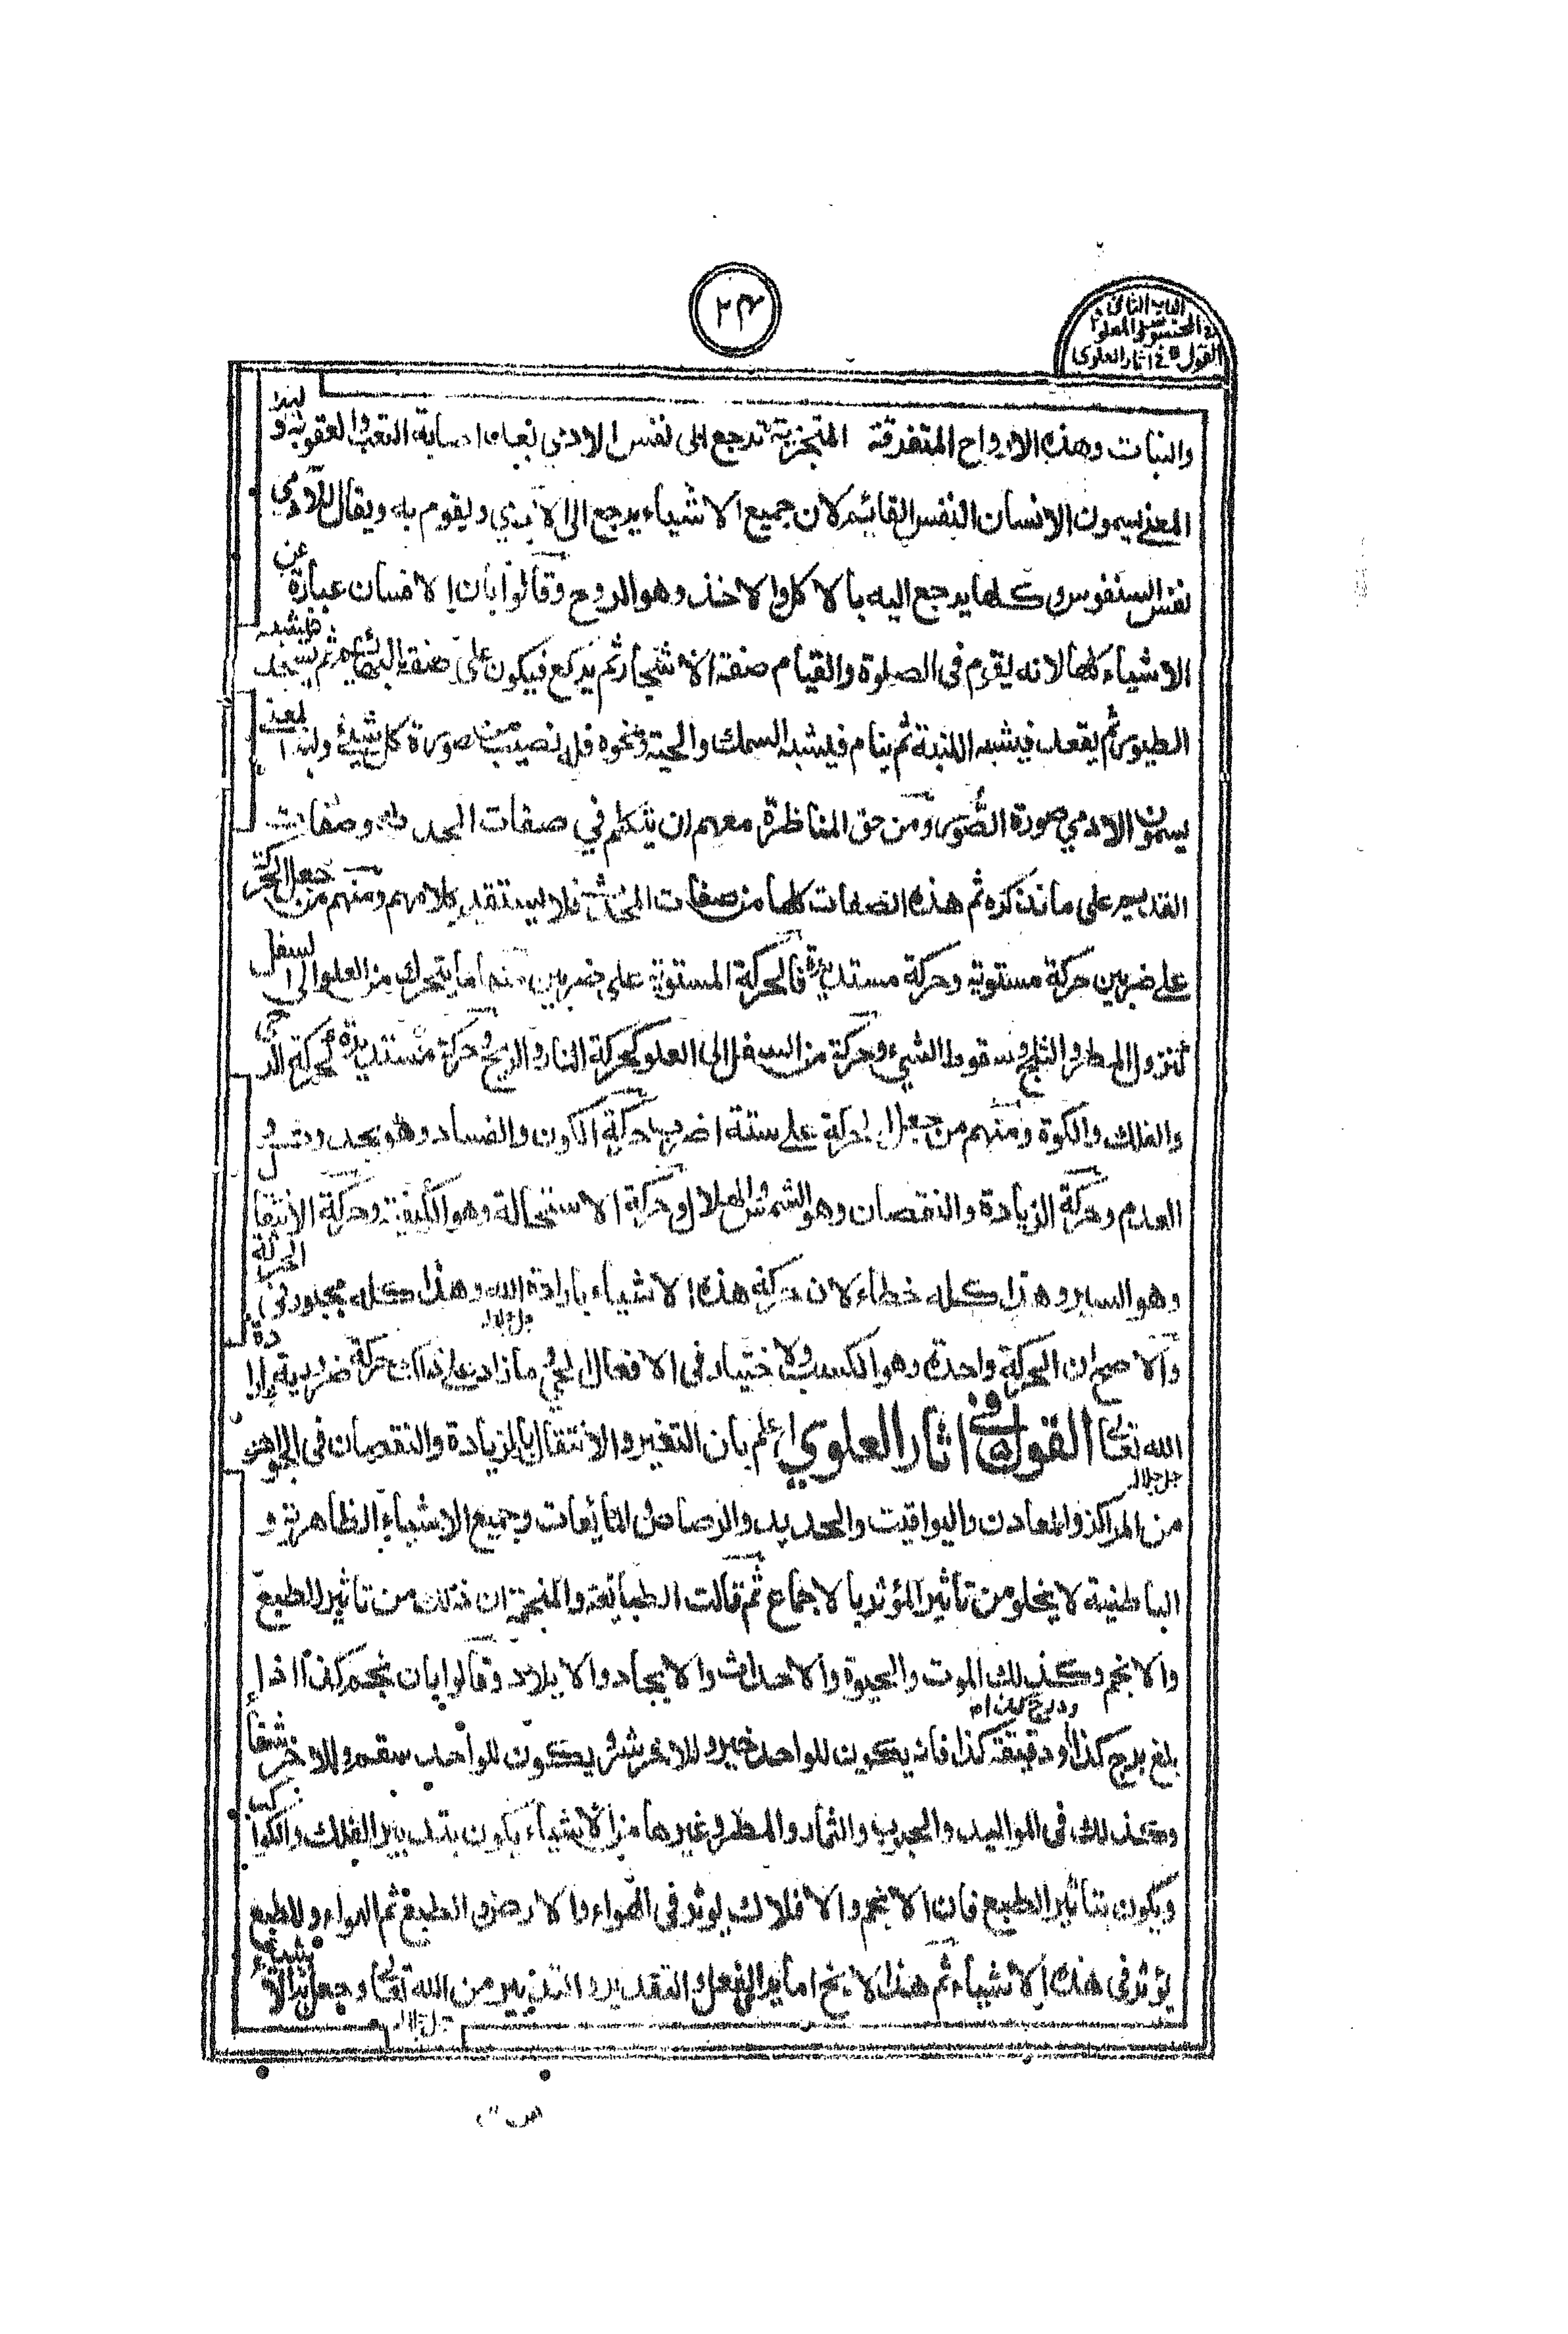 ٢٣
الباب الثانى
القول ٥ فى اثار العلوى
والنبات وهذه الارواح المتفرقة المتجزية ترجع الى نفس الادمي بعد اصابة التعب والعقوبة ولهذا
المعنى يسمون الانسان النفس القائمه لان جميع الاشياء يرجع الى الآدمي ويقوم به ويقال للآدمي
نفس النفوس كلها يرجع اليه بالاكل والاخذ وهو الروح وقالوا بان الانسان عبارة عن
الاشياء كلها لانه يقوم فى الصلوة والقيام صفة الاشجار ثم يركع فيكون على صفة البهائم ثم يسجد فيشبه
الطيور ثم يقعد فيشبه ثم ينام فيشبه السمك والحية ونحوه فله نصيب من صورة كل شيئ ولهذا المعنى
يسمون الادمي صورة الصُّور ومن حق المناظرة معهم ان يتكلم في صفات الحدث وصفات
القديم على ما نذكره ثم هذه الصفات كلها من صفات الحدث فلا يستقيم كلامهم ومنهم من جعل الحركة
على ضربين حركة مستوية وحركة مستديرة فالحركة المستوية على ضربين منها ما يتحرك من العلو الى السفل
كنزول المطر والثلج وسقوط الشيء وحركة من السفل الى العلو كحركة النار والريح وحركة مستديرة كحركة الرحى
والفلك والكرة ومنهم من جعل الحركة على ستة اضرب حركة الكون والفساد وهو
العدم وحركة الزيادة والنقصان وهو الشمس والهلال وحركة الاستحالة وهو الكيفية وحركة الانتقال
وهو السير وهذا كله خطاء لان حركة هذه الاشياء بارادة الله جل جلاله وهذا كله مجبور فى الحركة
والاصح ان الحركة واحدة وهو الكسب والاختيار فى الافعال الحي وما زاد على ذلك حركة ضرورية بارادة
الله تعالى جل جلاله القول ٥ فى اثار العلوي اعلم بان التغير والانتقال بالزيادة والنقصان فى الجواهر
من المراكز والمعادن واليواقيت والحديد والرصاص والمائعات وجميع الاشياء الظاهرة و
الباطنية لا يخلو من تاثير المؤثر بالاجماع ثم قالت الطبائعة والمنجمة ان ذلك من تاثير الطبع
والانجم وكذلك الموت والحيوة والاحداث والايجاد والايلاد وقالوا بان نجم كذا اذا
بلغ بدرج كذا او دقيقة كذا فانه يكون للواحد خير وللاخر شر ويكون للواحد سقم وللاخر شفأ
وكذلك فى المواليد والحبوب والثمار والمطر وغيرها من الاشياء يكون بتدبير الفلك والكواكب
ويكون بتاثير الطبع فان الانجم والافلاك يؤثر فى الهواء والارض والطبع ثم الهواء والطبع
يؤثر فى هذه الاشياء ثم هذا الانجم امارة الفعل والتقدير والتدبير من الله تعالى جل جلاله وجعل هذا الاشياء